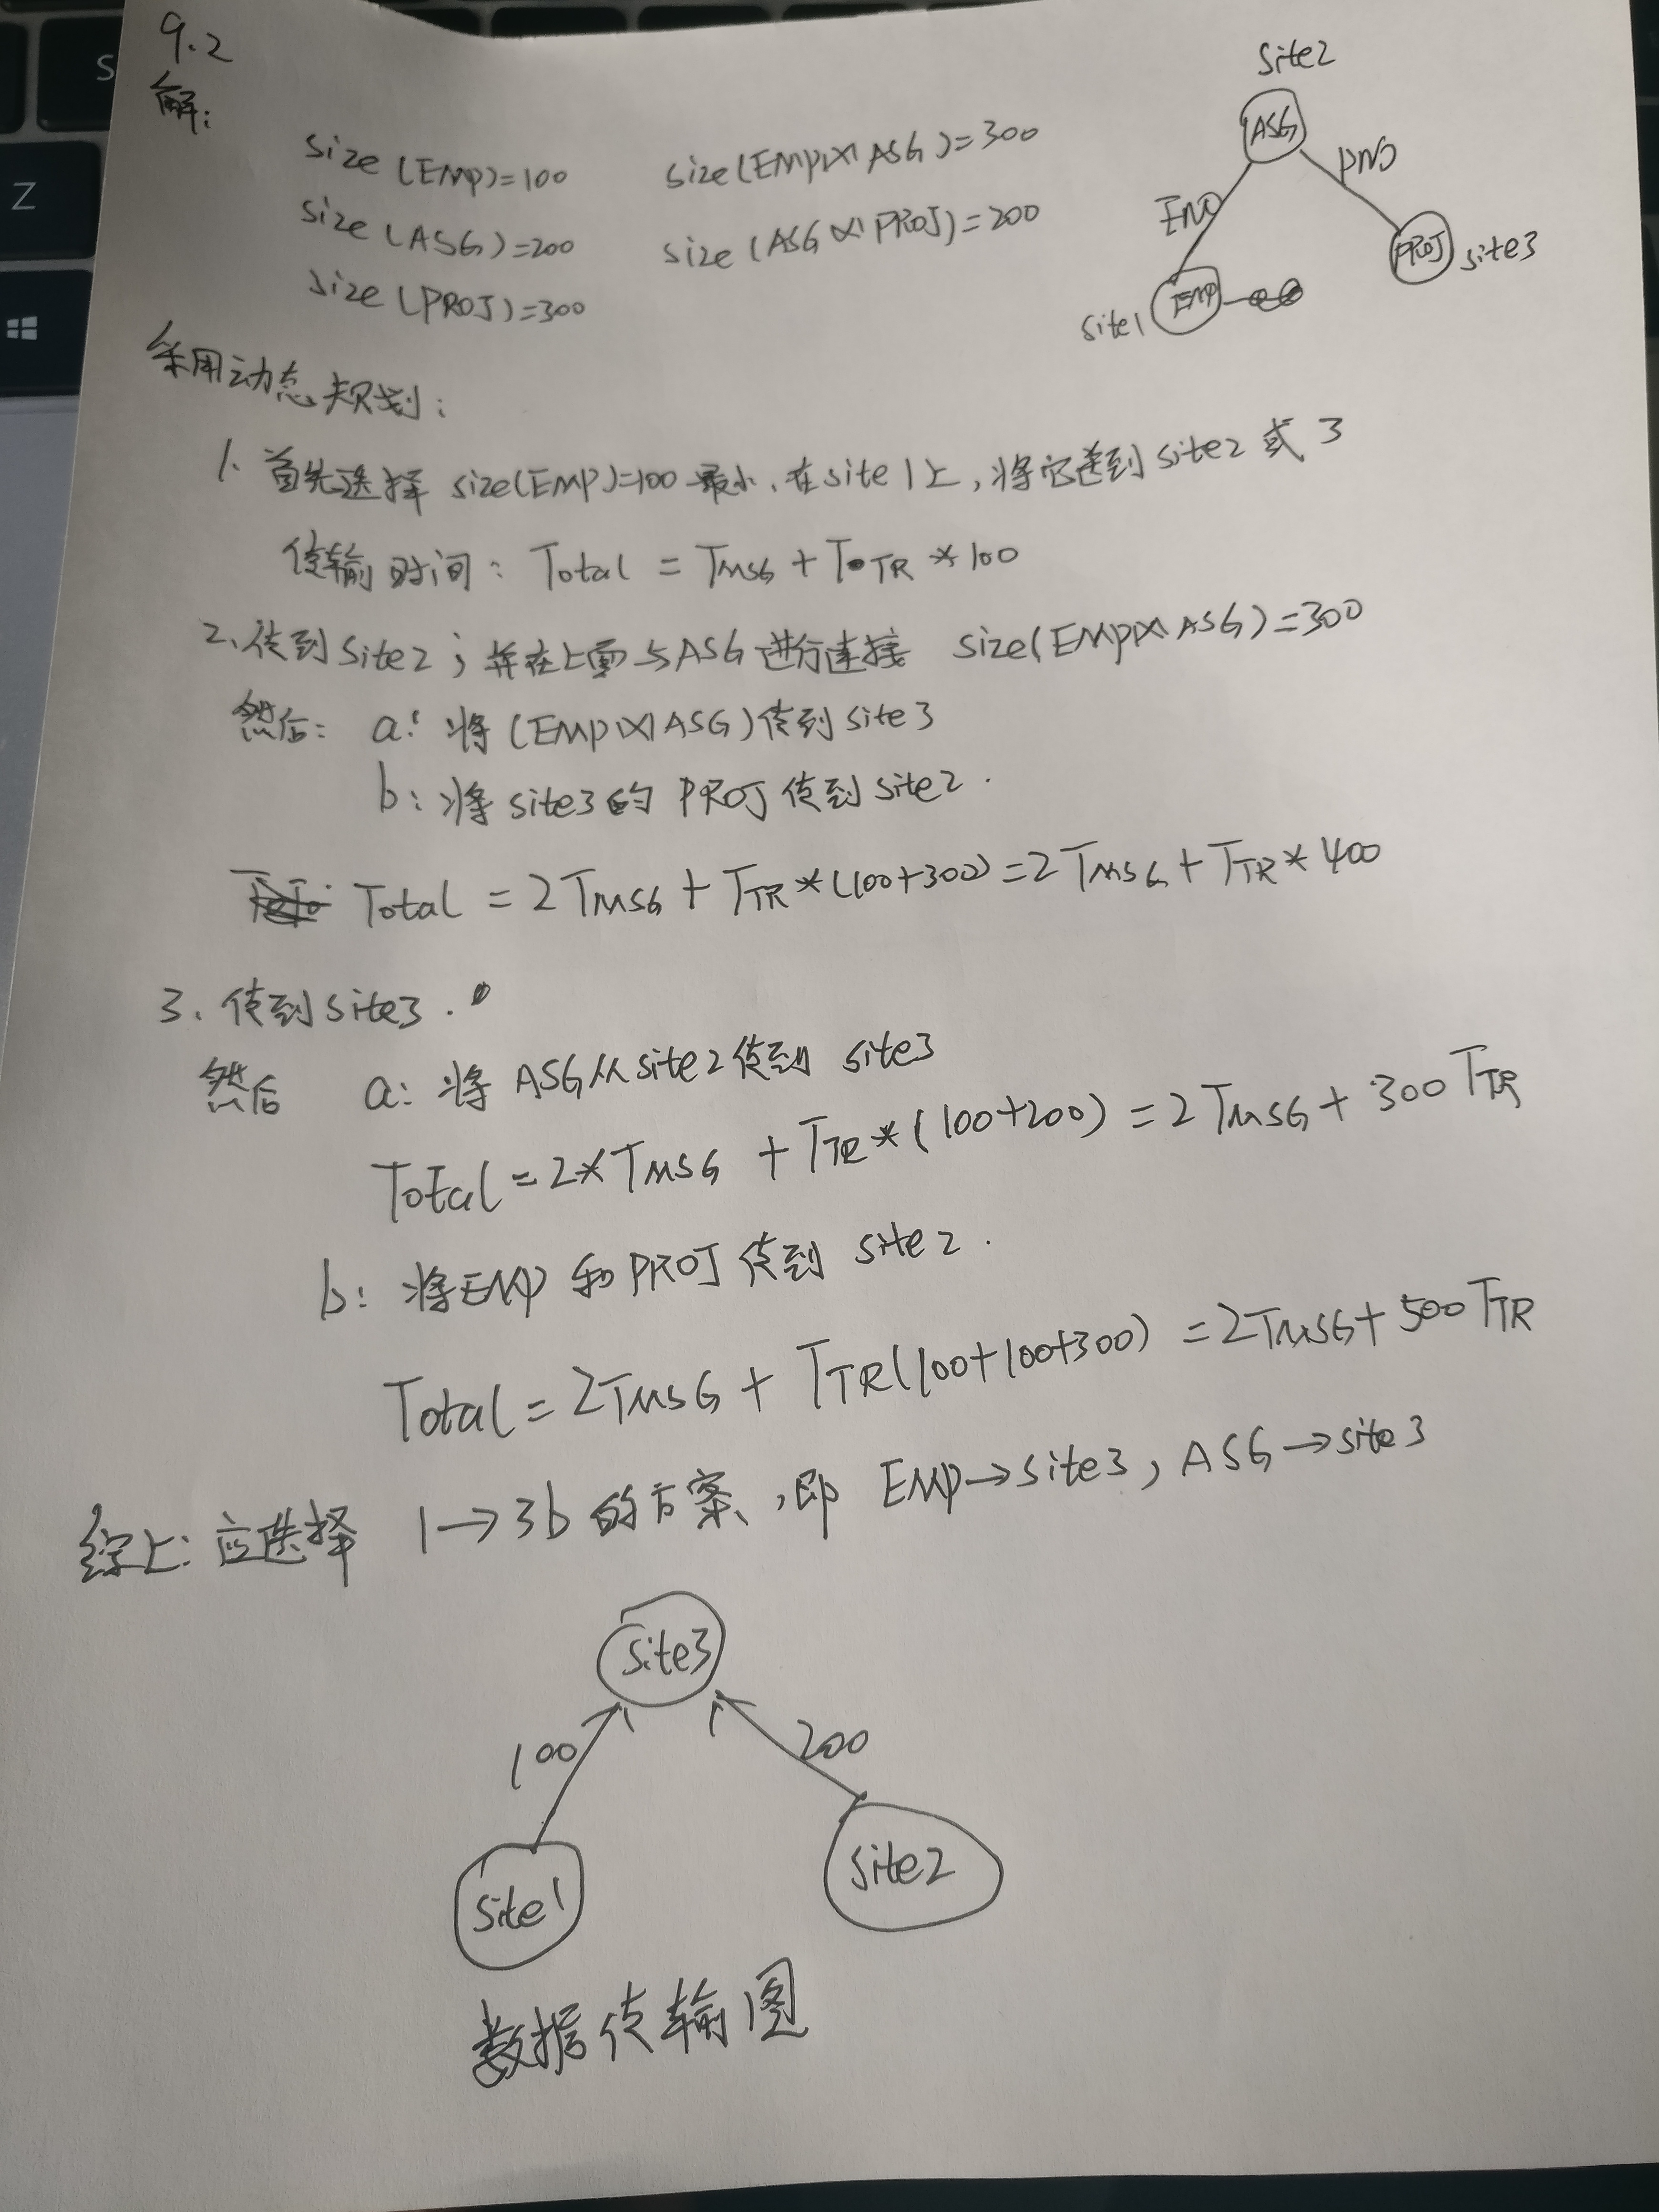 9.2
解:
size (EMP)=100 size(EMP⋈ASG)=300
size (ASG)=200 size (ASG⋈PROJ)=200
size (PROJ)=300
site2
ASG
ENO PNO
EMP PROJ
site1 site3
采用动态规划:
1. 首先选择 size(EMP)=100 最小,在site1上,将它送到site2 或 3
传输时间: Total = TMSG + TTR * 100
2. 传到site2; 并在上面与ASG进行连接 size(EMP⋈ASG)=300
然后: a: 将(EMP⋈ASG)传到site3
b: 将site3的PROJ传到site2.
Total = 2TMSG + TTR*(100+300)=2TMSG+TTR*400
3. 传到site3.
然后 a: 将ASG从site2传到 site3
Total = 2*TMSG + TTR*(100+200) = 2TMSG + 300TTR
b: 将EMP 和PROJ传到 site2.
Total = 2TMSG + TTR(100+100+300) = 2TMSG+500TTR
综上: 应选择 1→3b的方案,即 EMP→site3, ASG→site3
site3
100 200
site1 site2
数据传输图
S
Z